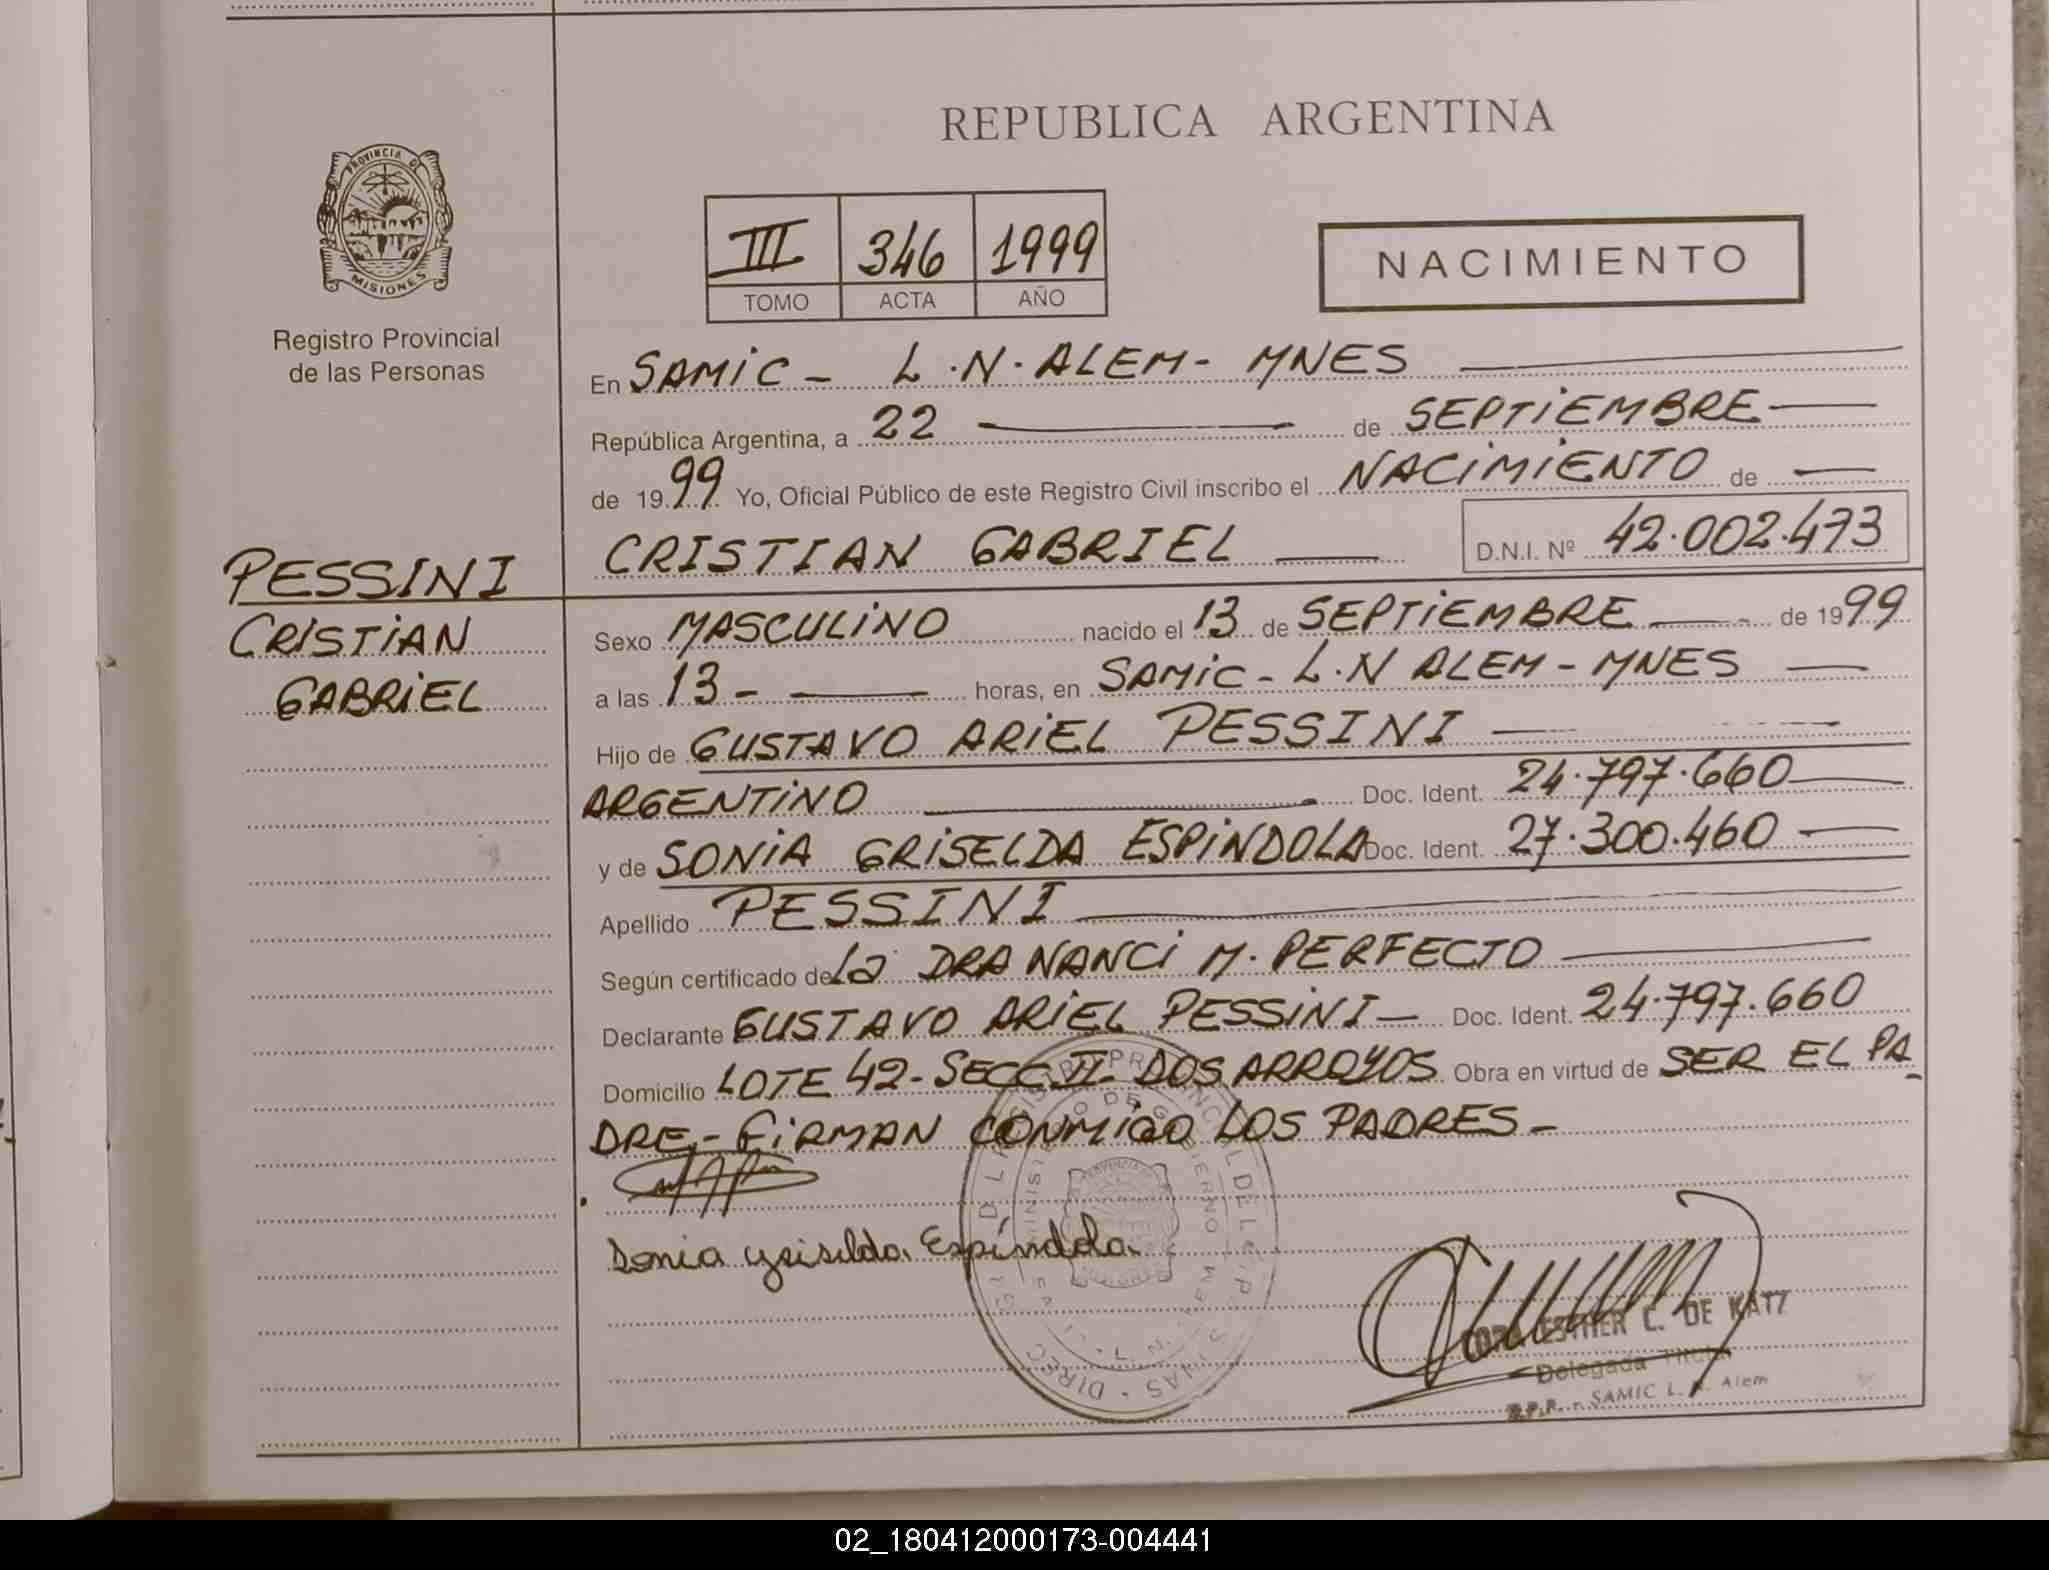 REPUBLICA ARGENTINA
PROVINCIA DE
MISIONES
Registro Provincial
de las Personas
III 346 1999
TOMO ACTA AÑO
NACIMIENTO
En SAMIC - L.N. ALEM - MNES
República Argentina, a 22 de SEPTIEMBRE
de 1999 Yo, Oficial Público de este Registro Civil inscribo el NACIMIENTO de
CRISTIAN GABRIEL D.N.I. Nº 42.002.473
PESSINI
CRISTIAN
GABRIEL
Sexo MASCULINO nacido el 13 de SEPTIEMBRE de 1999
a las 13 - horas, en SAMIC - L.N ALEM - MNES
Hijo de GUSTAVO ARIEL PESSINI
ARGENTINO Doc. Ident. 24.797.660
y de SONIA GRISELDA ESPINDOLA Doc. Ident. 27.300.460
Apellido PESSINI
Según certificado de la DRA NANCI M. PERFECTO
Declarante GUSTAVO ARIEL PESSINI - Doc. Ident. 24.797.660
Domicilio LOTE 42 - SECC II - DOS ARROYOS Obra en virtud de SER EL PA
DRE - FIRMAN CONMIGO LOS PADRES -
Sonia Griselda Espíndola
ESTHER C. DE KATZ
Delegada Titular
R.P.P. - SAMIC L. N. Alem
02_180412000173-004441